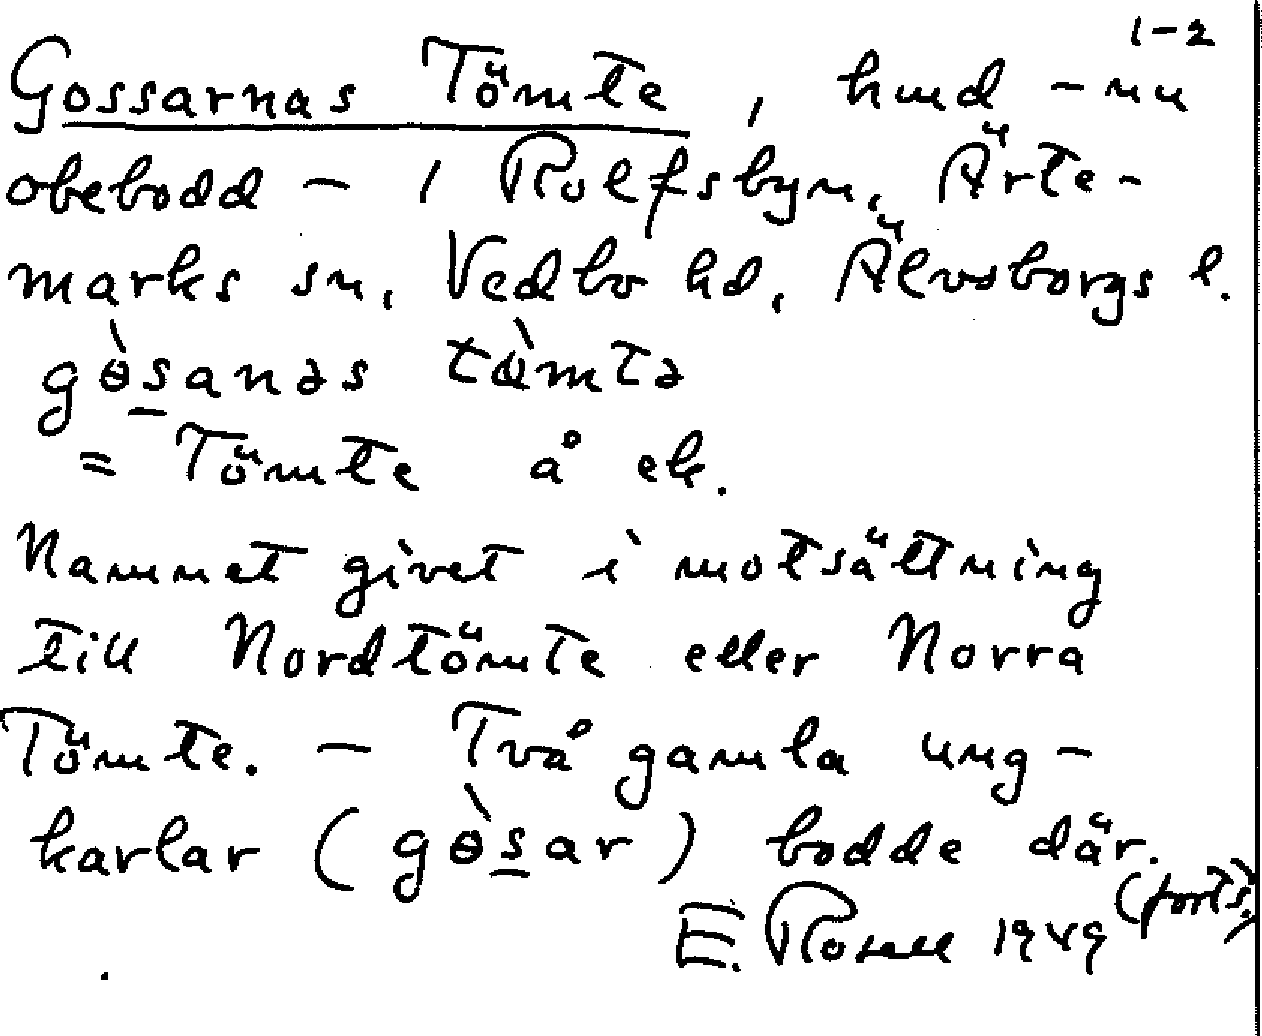 1-2
Gossarnas Tömte, hmd - nu
obebodd - i Rolfsbyn, Ärte-
marks sn, Vedbo hd, Älvsborgs l.
gɵ̀s̲anəs tɵ̀mtə
= Tömte å ek.
Namnet givet i motsättning
till Nordtömte eller Norra
Tömte. - Två gamla ung-
karlar (gɵ̀s̲ar) bodde där.
(forts.)
E. Rosell 1949